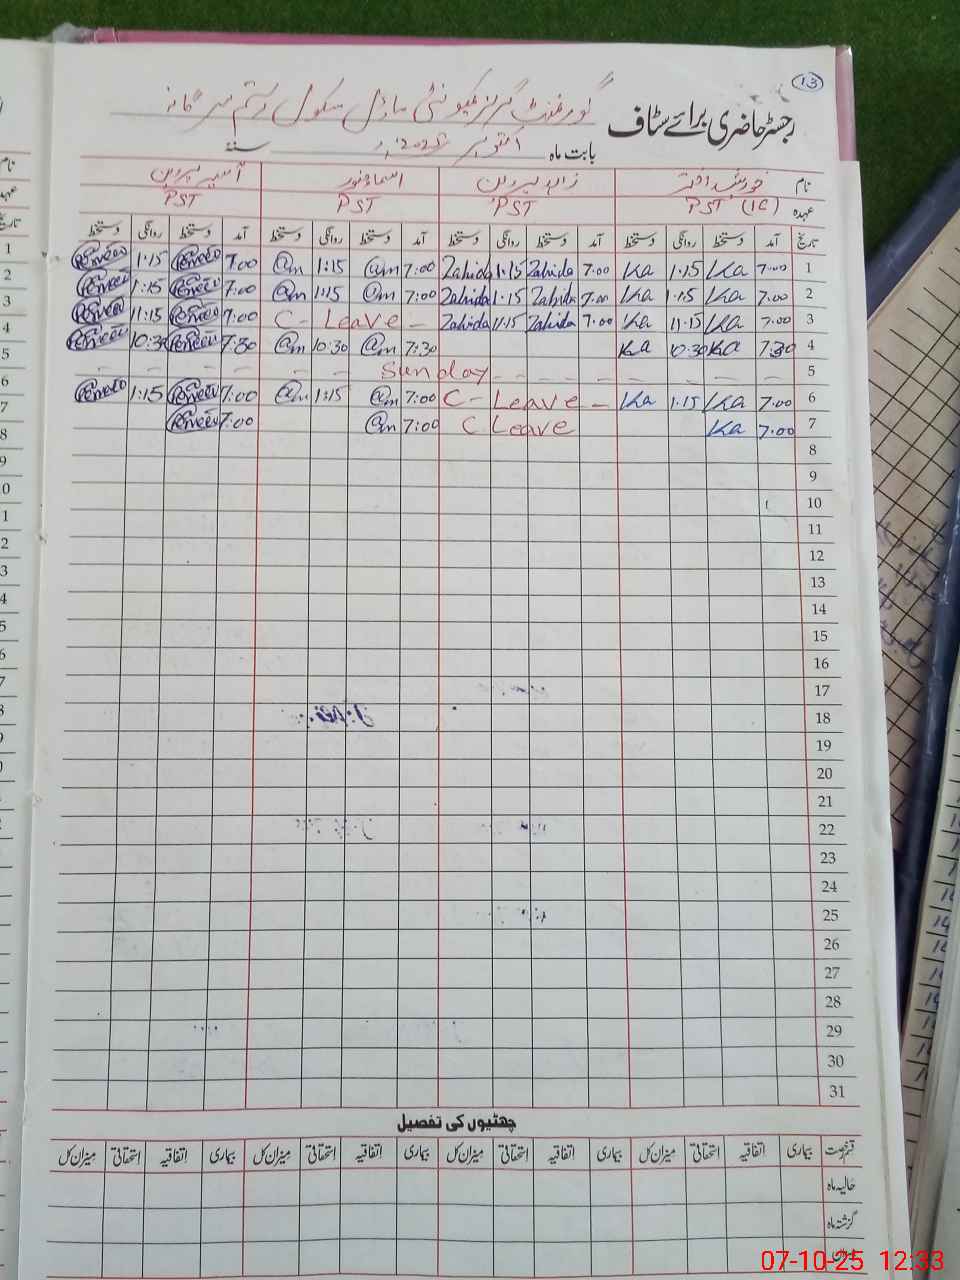 13
رجسٹر حاضری برائے سٹاف گورنمنٹ گرلز کمیونٹی ماڈل سکول رستم سرگانہ
بابت ماہ اکتوبر 2025ء سنہ
نام خورشید اختر زاہدہ پروین اسماء نور آسیہ پروین
عہدہ PST (IC) PST PST PST
تاریخ آمد دستخط روانگی دستخط آمد دستخط روانگی دستخط آمد دستخط روانگی دستخط آمد دستخط روانگی دستخط
1 7:00 Ka 1:15 Ka 7:00 Zahida 1:15 Zahida 7:00 @m 1:15 @m 7:00 1:15
2 7:00 Ka 1:15 Ka 7:00 Zahida 1:15 Zahida 7:00 @m 1:15 @m 7:00 1:15
3 7:00 Ka 11:15 Ka 7:00 Zahida 11:15 Zahida C - Leave - 7:00 11:15
4 7:30 Ka 10:30 Ka 7:30 @m 10:30 @m 7:30 10:30
5 Sunday
6 7:00 Ka 1:15 Ka C - Leave - 7:00 @m 1:15 @m 7:00 1:15
7 7:00 Ka C Leave 7:00 @m 7:00
8
9
10
11
12
13
14
15
16
17
18
19
20
21
22
23
24
25
26
27
28
29
30
31
چھٹیوں کی تفصیل
قسم رخصت بیماری اتفاقیہ استحقاقی میزان کل بیماری اتفاقیہ استحقاقی میزان کل بیماری اتفاقیہ استحقاقی میزان کل بیماری اتفاقیہ استحقاقی میزان کل
حالیہ ماہ
گزشتہ ماہ
07-10-25 12:33